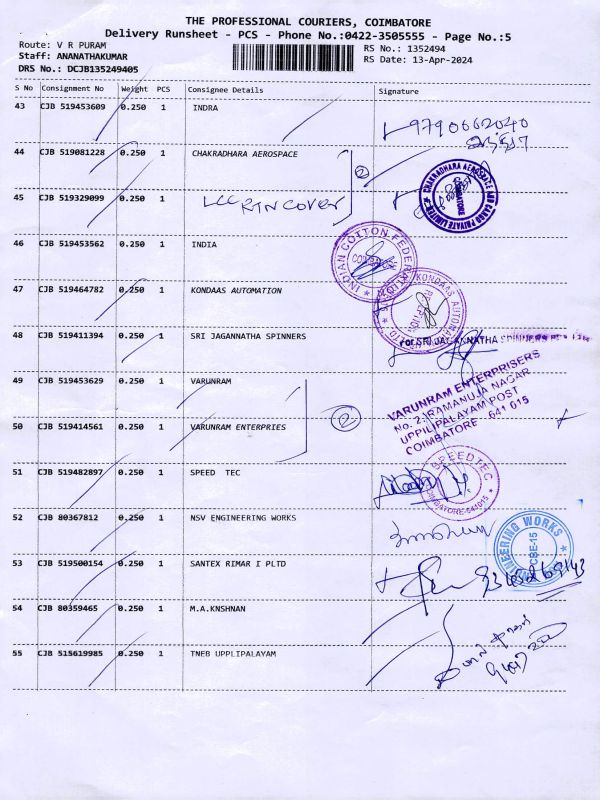 THE PROFESSIONAL COURIERS, COIMBATORE
Delivery Runsheet - PCS - Phone No.:0422-3505555 - Page No.:5
Route: V R PURAM
RS No.: 1352494
Staff: ANANATHAKUMAR
RS Date: 13-Apr-2024
DRS No.: DCJB135249405
S No Consignment No Weight PCS Consignee Details Signature
43 CJB 519453609 0.250 1 INDRA
9790662040
44 CJB 519081228 0.250 1 CHAKRADHARA AEROSPACE
2
CHAKRADHARA AEROSPACE AND CARGO PRIVATE LIMITED
COIMBATORE
45 CJB 519329099 0.250 1
RTN COVER
46 CJB 519453562 0.250 1 INDIA
INDIAN COTTON FEDERATION
47 CJB 519464782 0.250 1 KONDAAS AUTOMATION
KONDAAS AUTOMATION
48 CJB 519411394 0.250 1 SRI JAGANNATHA SPINNERS
For SRI JAGANNATHA SPINNERS
49 CJB 519453629 0.250 1 VARUNRAM
VARUNRAM ENTERPRISERS
No. 2, RAMANUJA NAGAR
UPPILIPALAYAM POST
COIMBATORE - 641 015
2
50 CJB 519414561 0.250 1 VARUNRAM ENTERPRIES
51 CJB 519482897 0.250 1 SPEED TEC
SPEEDTEC
COIMBATORE-641015
52 CJB 80367812 0.250 1 NSV ENGINEERING WORKS
ENGINEERING WORKS
CBE-15
53 CJB 519500154 0.250 1 SANTEX RIMAR I PLTD
54 CJB 80359465 0.250 1 M.A.KNSHNAN
55 CJB 515619985 0.250 1 TNEB UPPLIPALAYAM